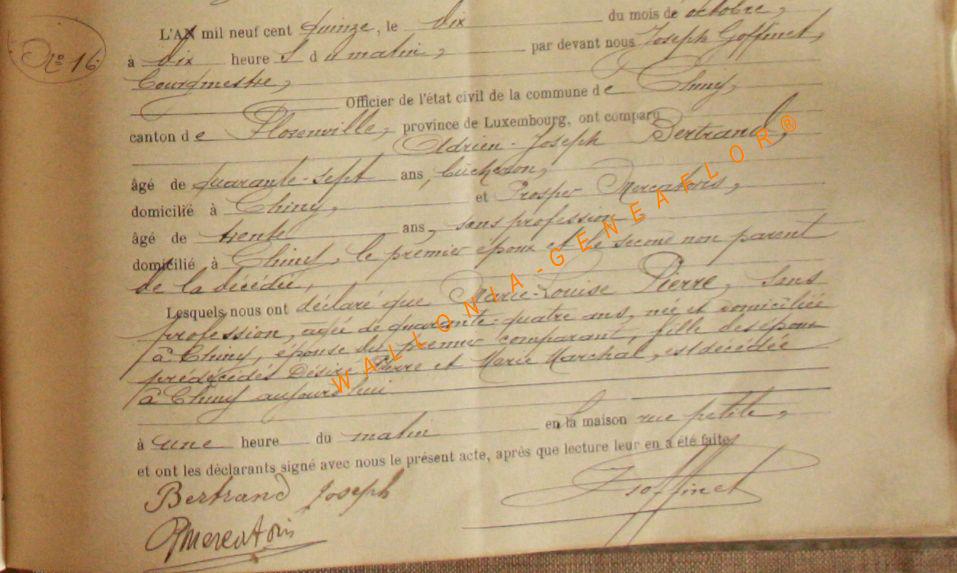 No 16.
L'AN mil neuf cent quinze, le dix du mois de octobre,
à dix heure s du matin, par devant nous Joseph Goffinet,
bourgmestre,
Officier de l'état civil de la commune de Chiny,
canton de Florenville, province de Luxembourg, ont comparu
Adrien-Joseph Bertrand,
âgé de quarante-sept ans, bûcheron,
domicilié à Chiny, et Prosper Mercatoris,
âgé de trente ans, sans profession
domicilié à Chiny, le premier époux et le second non parent
de la décédée,
Lesquels nous ont déclaré que Marie-Louise Pierre, sans
profession, agée de quarante-quatre ans, née et domiciliée
à Chiny, épouse du premier comparant, fille des époux
prédécédés Désiré Pierre et Marie Marchal, est décédée
à Chiny aujourd'hui
à une heure du matin en la maison rue petite,
et ont les déclarants signé avec nous le présent acte, après que lecture leur en a été faite
Bertrand Joseph
J Goffinet
P Mercatoris
WALLONIA-GENEAFLOR®